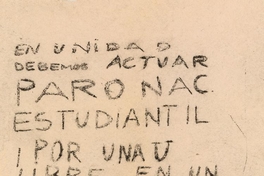 EN UNIDAD
DEBEMOS ACTUAR
PARO NAC.
ESTUDIANTIL
¡POR UNA U
LIBRE EN UN